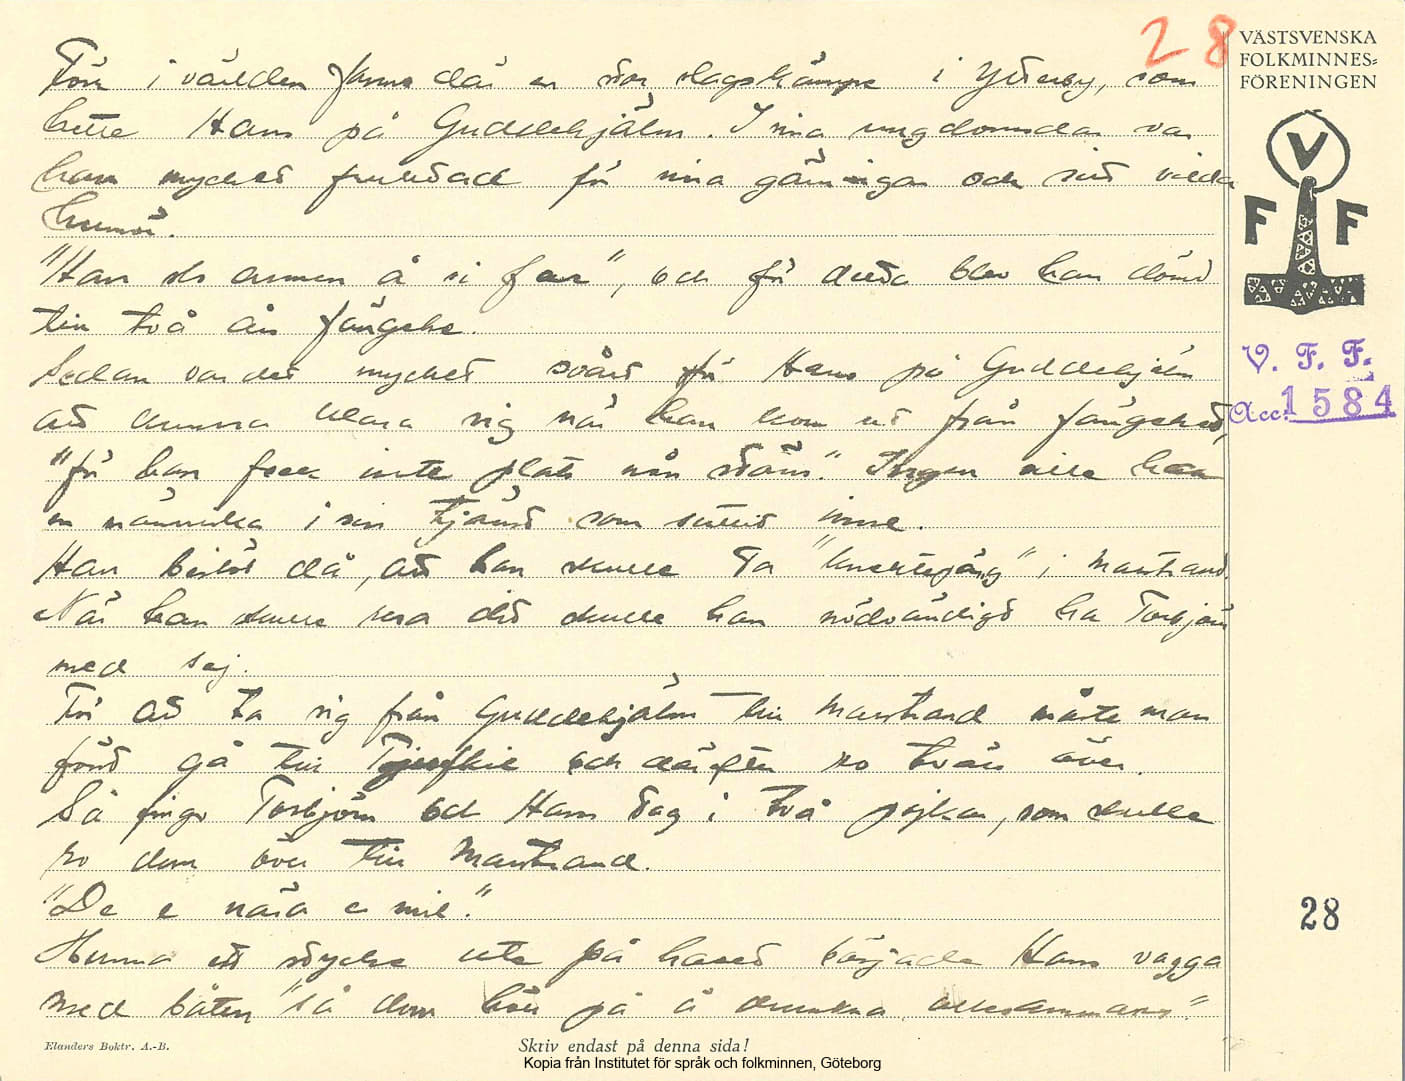 28
VÄSTSVENSKA
FOLKMINNES=
FÖRENINGEN
V
F F
V. F. F.
Acc. 1584
Förr i världen fanns där en stor slagskämpe i Ytterby, som
hette Hans på Guddehjälm. I sina ungdomsdar var
han mycket fruktad för sina gärningar och sitt vilda
humör.
"Han slo armen å si far", och för detta blev han dömd
till två års fängelse.
Sedan var det mycket svårt för Hans på Guddehjälm
att kunna klara sig när han kom ut från fängelset,
"för han feck inte plats nån stans." Ingen ville haa
en människa i sin tjänst som suttit inne.
Han beslöt då, att han skulle ta "knektepäng" i Marstrand.
När han skulle resa dit skulle han nödvändigt ha Torbjörn
med sej.
För att ta sig från Guddehjälm till Marstrand måste man
först gå till Tjuvkil och därifrån ro tvärs över.
Så fingo Torbjörn och Hans tag i två pojkar, som skulle
ro dom över till Marstrand.
"De e nära e mil."
Hemma ett stycke ute på havet började Hans vagga
med båten "så dom höll på å drunkna allesammans".
28
Elanders Boktr. A.-B.
Skriv endast på denna sida!
Kopia från Institutet för språk och folkminnen, Göteborg